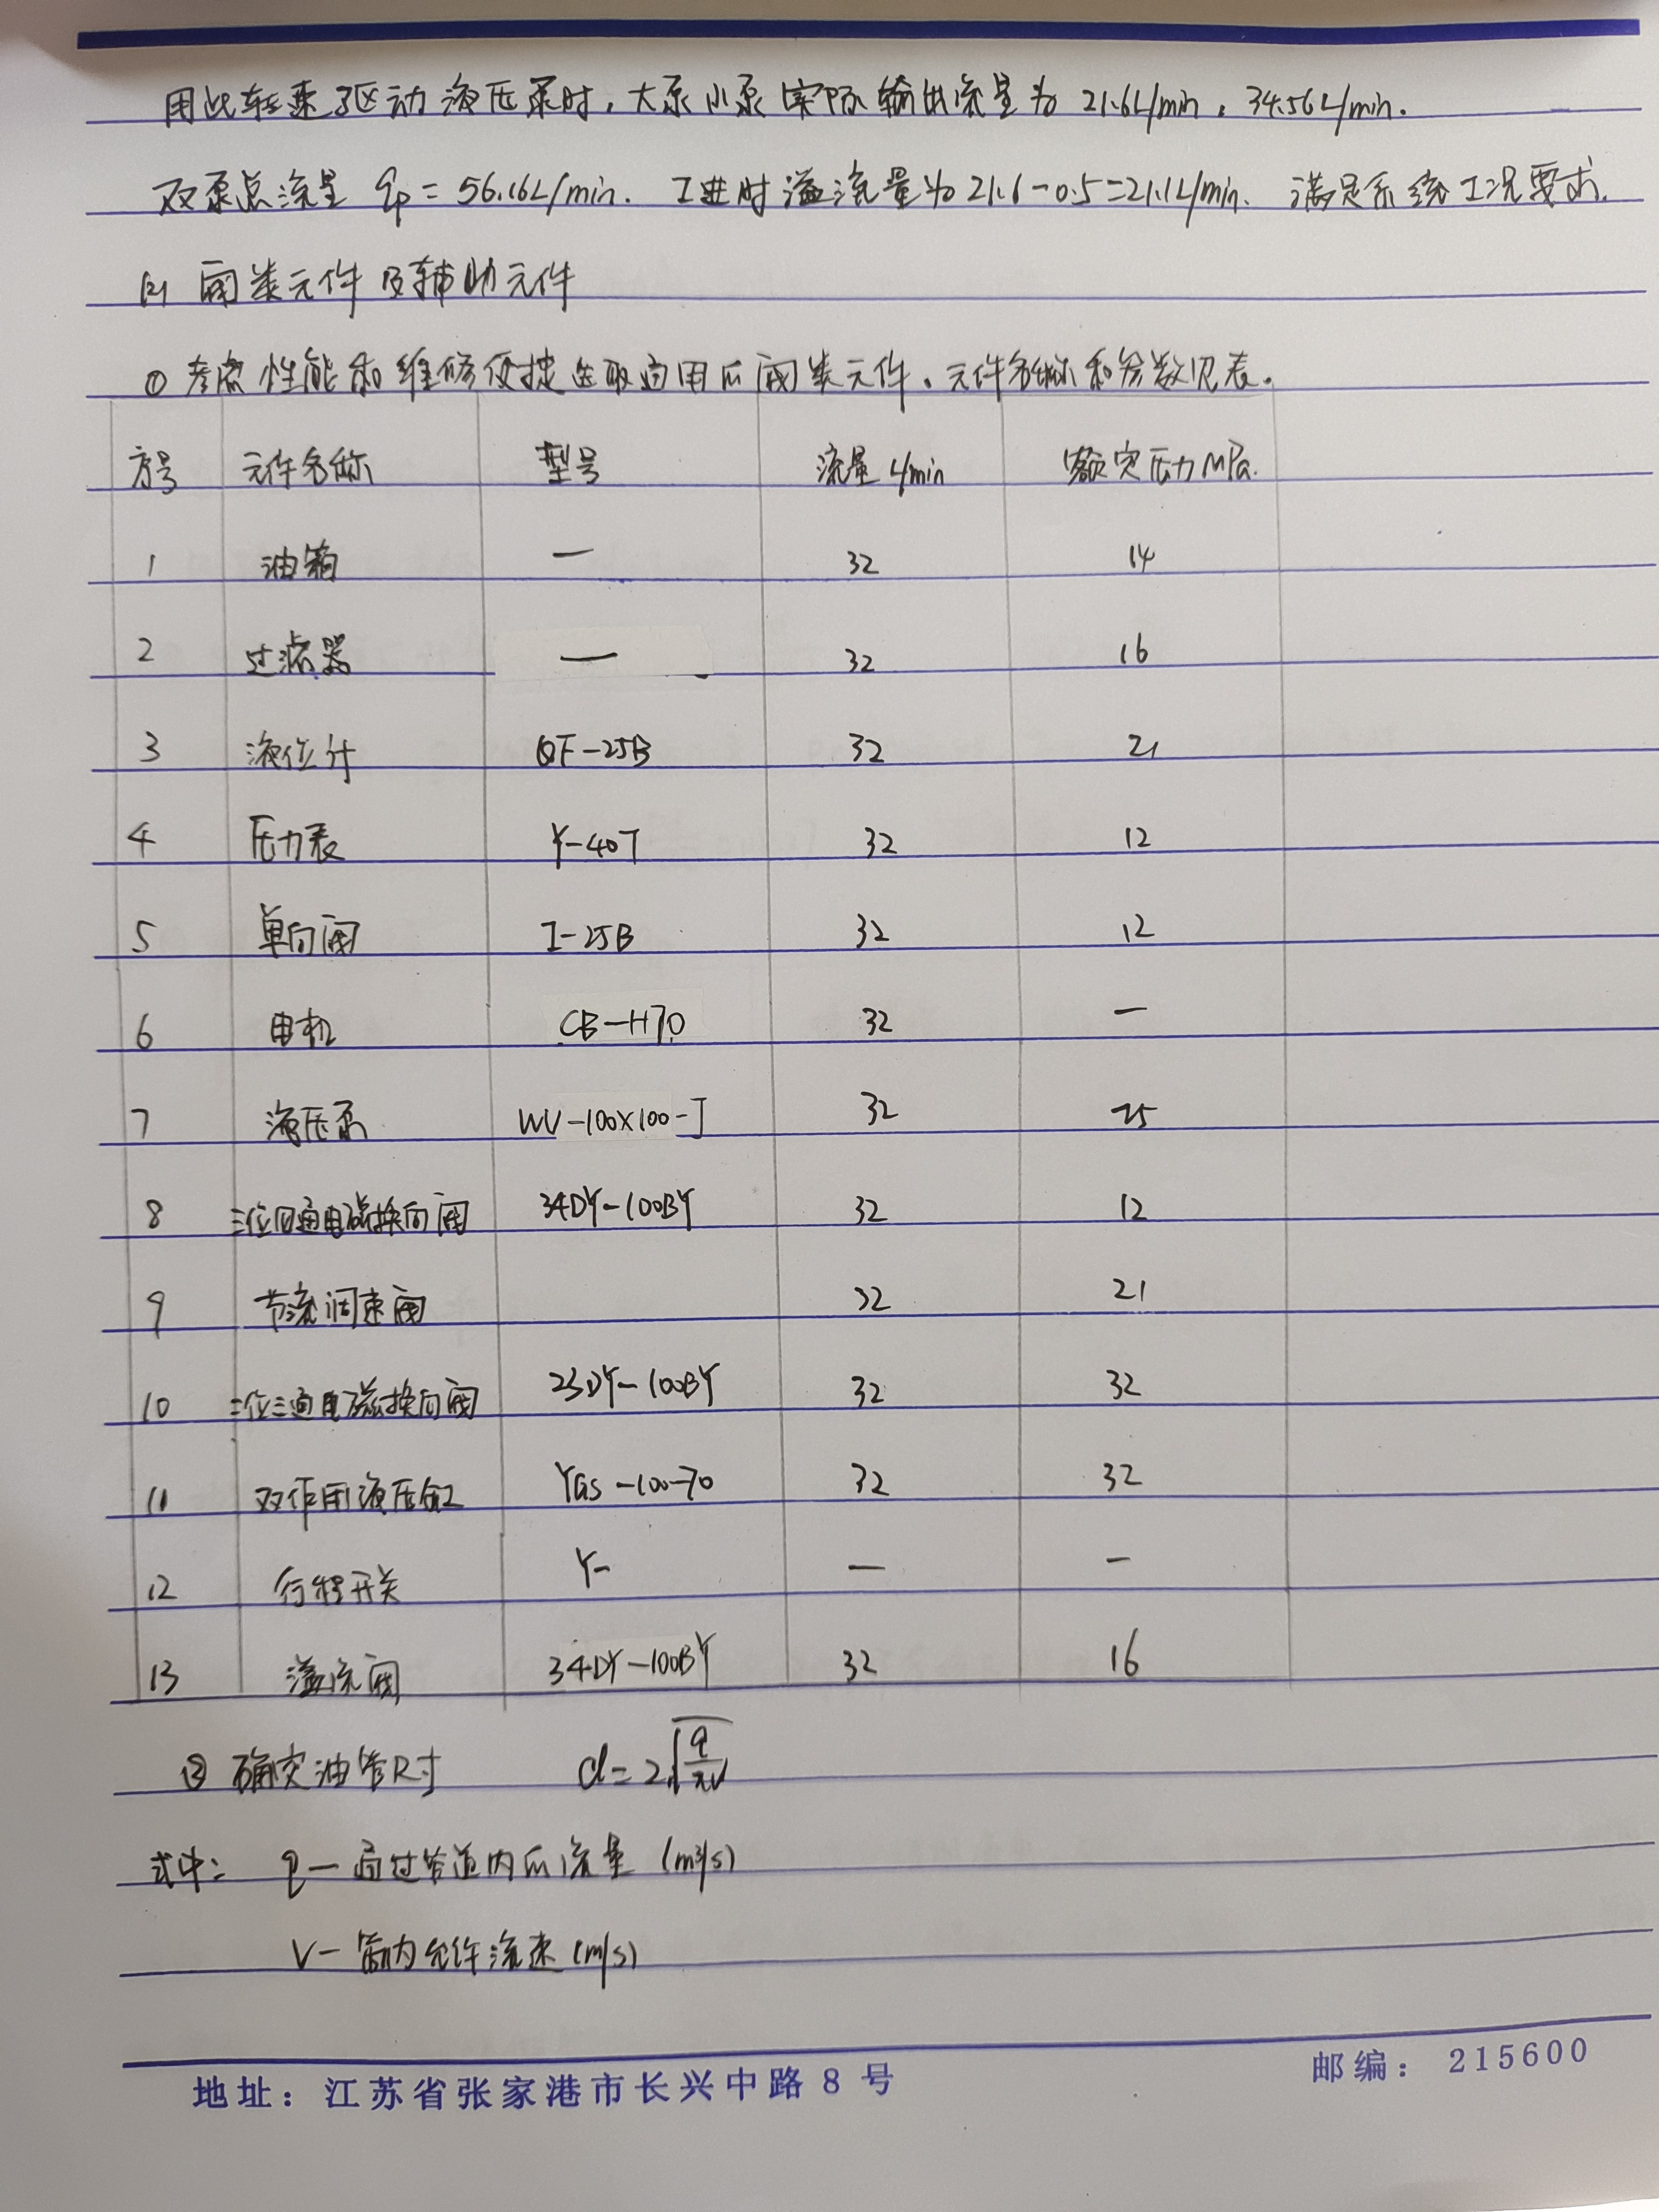 用此转速驱动液压泵时，大泵小泵实际输出流量为 21.6L/min，34.56L/min.
双泵总流量 qp = 56.16L/min. 工进时溢流量为 21.6-0.5=21.1L/min. 满足系统工况要求.
(2) 阀类元件及辅助元件
① 考虑性能和维修便捷选取适用的阀类元件，元件名称和参数见表。
序号 元件名称 型号 流量 L/min 额定压力 MPa.
1 油箱 — 32 14
2 过滤器 — 32 16
3 液位计 QF-25B 32 21
4 压力表 Y-40T 32 12
5 单向阀 I-25B 32 12
6 电机 CB-H70 32 —
7 液压泵 WU-100X100-J 32 25
8 三位四通电磁换向阀 34DY-100BY 32 12
9 节流调速阀 32 21
10 二位三通电磁换向阀 23DY-100BY 32 32
11 双作用液压缸 YGS-100-70 32 32
12 行程开关 Y- — —
13 溢流阀 34DY-100BY 32 16
② 确定油管尺寸 d=2√(q/πv)
式中: q — 通过管道内的流量 (m³/s)
V — 管内允许流速 (m/s)
地址: 江苏省张家港市长兴中路 8 号 邮编: 215600